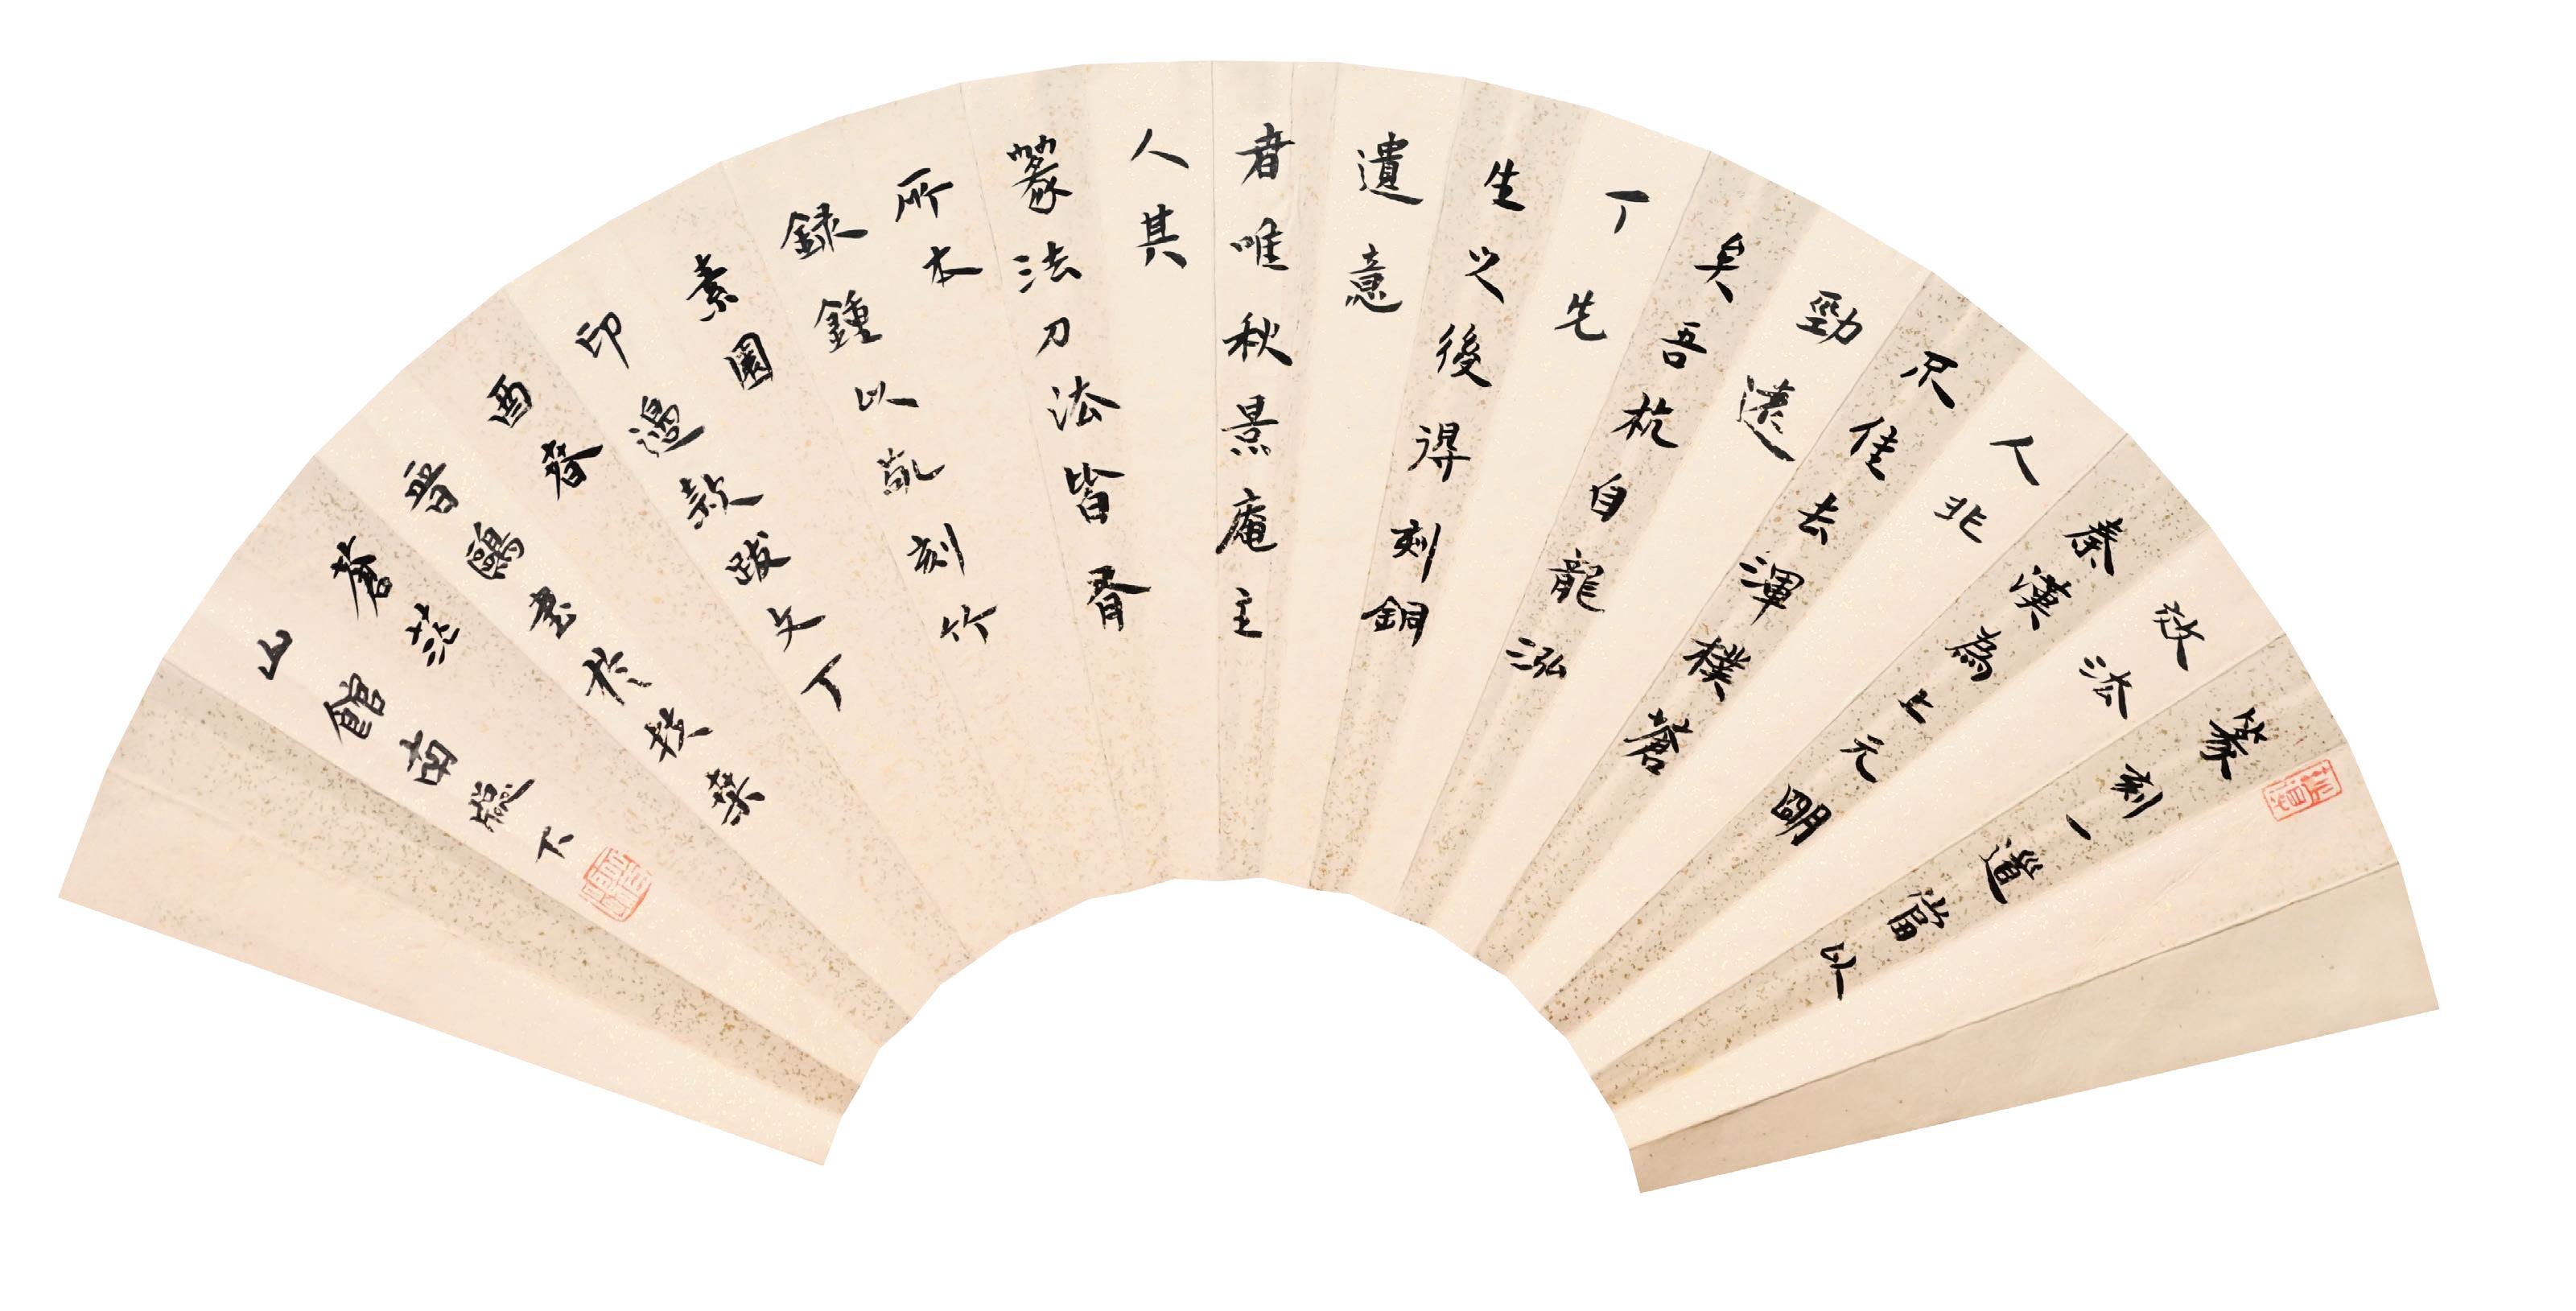 篆刻一道當以
效法
秦漢為上元明
人非
不佳去渾樸蒼
勁遠
矣吾杭自龍泓
丁先
生之後得刻銅
遺意
者唯秋景庵主
人其
篆法刀法皆有
所本
録鍾以敬刻竹
素園
印邊款跋文丁
酉春
晉鷗書於扶桑
蒼茫
山館南牕下